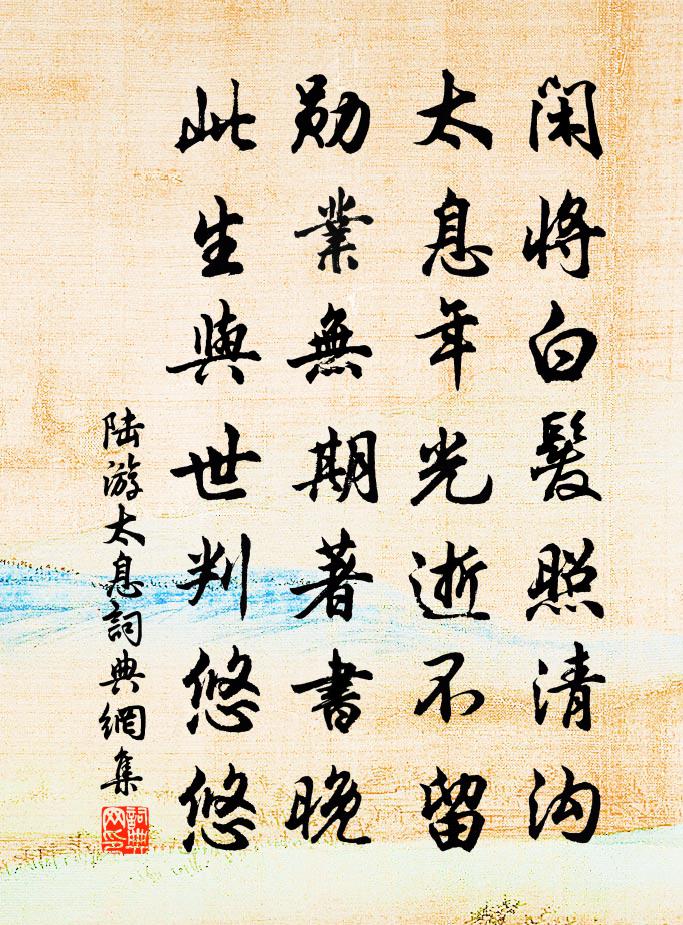 閑將白髮照清沟
太息年光逝不留
勋業無期著書晚
此生與世判悠悠
陆游太息詞典網集
詞典网印